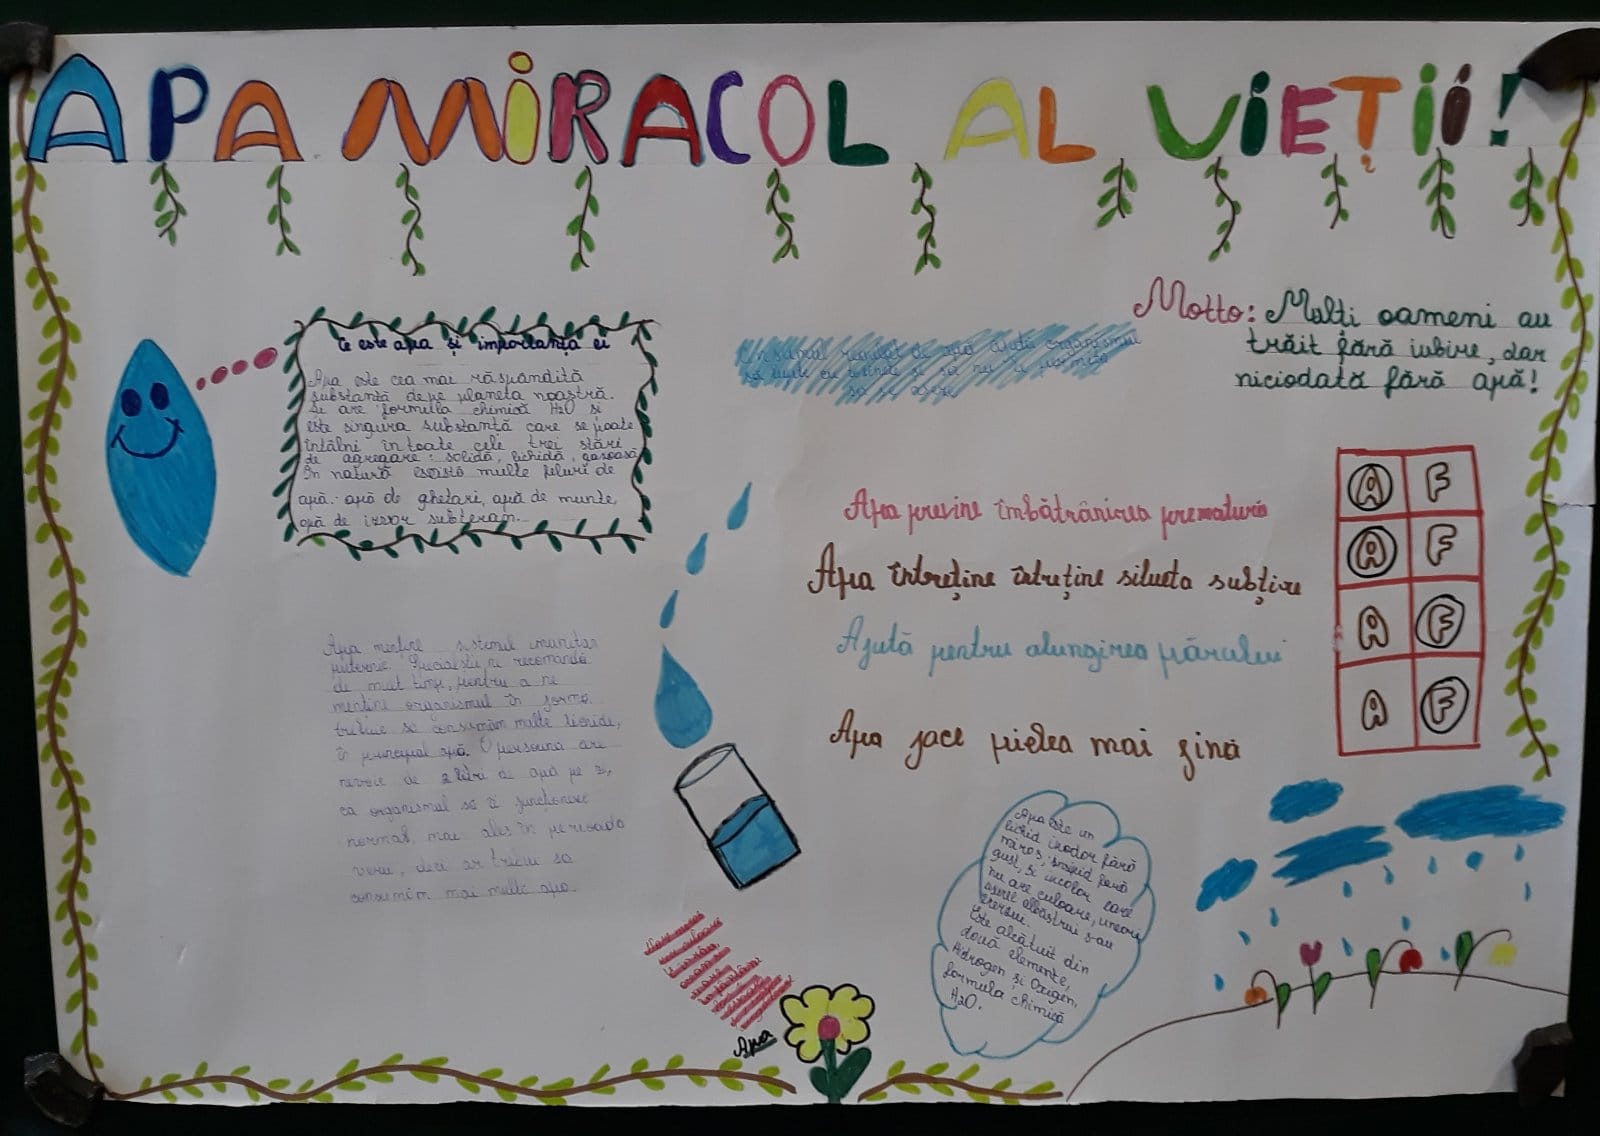 APA MIRACOL AL VIEȚII!
Motto: Mulți oameni au
trăit fără iubire, dar
niciodată fără apă!
Ce este apa și importanța ei
Apa este cea mai răspândită
substanță de pe planeta noastră.
Se are formula chimică H2O și
este singura substanță care se poate
întâlni în toate cele trei stări
de agregare: solidă, lichidă, gazoasă
În natură există multe feluri de
apă: apă de ghețari, apă de munte,
apă de izvor subteran.
Apa previne îmbătrânirea prematură
Apa întreține întreține silueta subțire
Ajută pentru alungirea părului
Apa face pielea mai fină
A F
A F
A F
A F
Apa menține sistemul imunitar
puternic. Specialiștii ne recomandă
de mult timp, pentru a ne
menține organismul în forma
trebuie să consumăm multe lichide,
în principal apă. O persoană are
nevoie de 2 litri de apă pe zi,
ca organismul să funcționeze
normal, mai ales în perioada
verii, deci ar trebui să
consumăm mai multă apă.
Apa este un
lichid inodor fără
miros, insipid fără
gust, și incolor care
nu are culoare, uneori
apare albăstrui sau
Este alcătuit din
două elemente,
Hidrogen și Oxigen,
formula chimică
H2O.
Apa